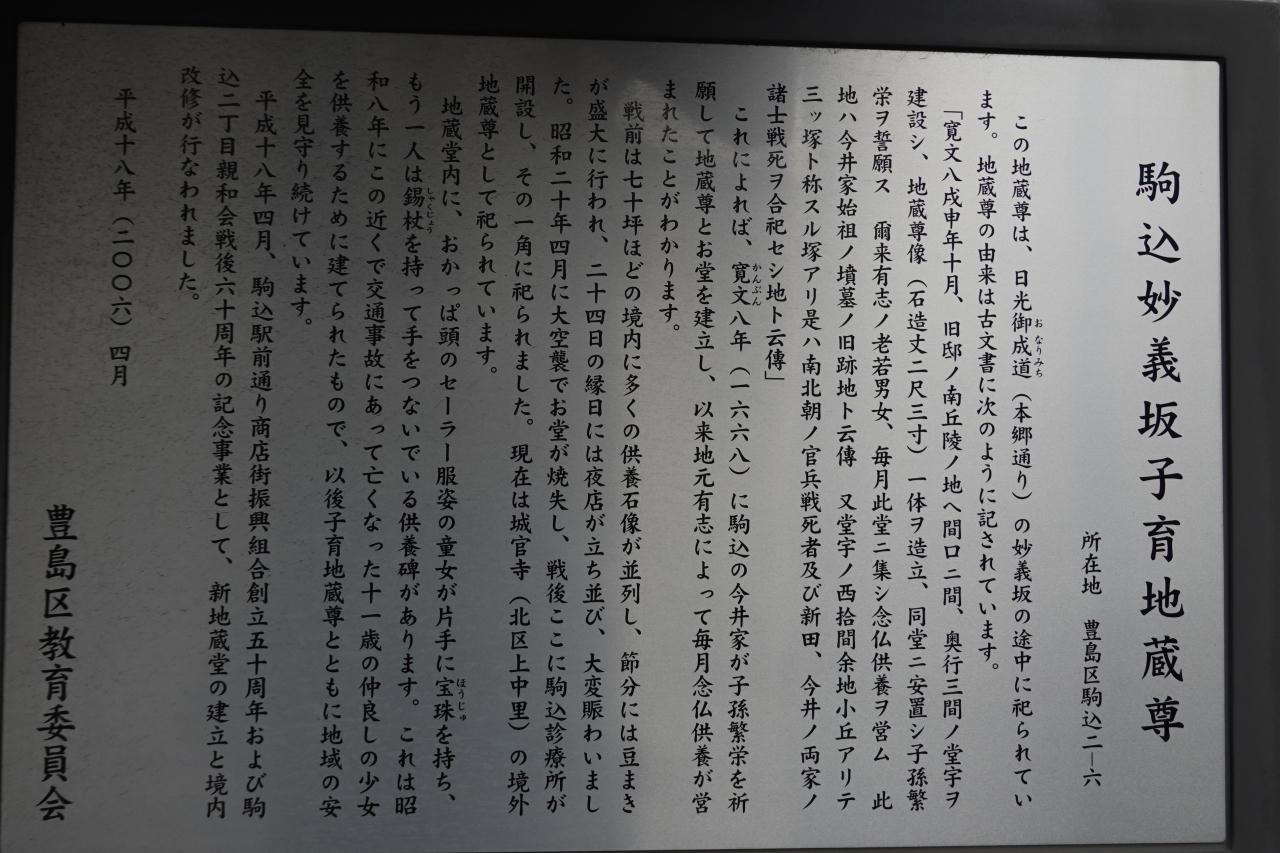 駒込妙義坂子育地蔵尊
所在地　豊島区駒込二ー六
この地蔵尊は、日光御成道（本郷通り）の妙義坂の途中に祀られてい
ます。地蔵尊の由来は古文書に次のように記されています。
「寛文八戌申年十月、旧邸ノ南丘陵ノ地ヘ間口二間、奥行三間ノ堂宇ヲ
建設シ、地蔵尊像（石造丈二尺三寸）一体ヲ造立、同堂ニ安置シ子孫繁
栄ヲ誓願ス　爾来有志ノ老若男女、毎月此堂ニ集シ念仏供養ヲ営ム　此
地ハ今井家始祖ノ墳墓ノ旧跡地ト云傳　又堂宇ノ西拾間余地小丘アリテ
三ッ塚ト称スル塚アリ是ハ南北朝ノ官兵戦死者及び新田、今井ノ両家ノ
諸士戦死ヲ合祀セシ地ト云傳」
これによれば、寛文八年（一六六八）に駒込の今井家が子孫繁栄を祈
願して地蔵尊とお堂を建立し、以来地元有志によって毎月念仏供養が営
まれたことがわかります。
戦前は七十坪ほどの境内に多くの供養石像が並列し、節分には豆まき
が盛大に行われ、二十四日の縁日には夜店が立ち並び、大変賑わいまし
た。昭和二十年四月に大空襲でお堂が焼失し、戦後ここに駒込診療所が
開設し、その一角に祀られました。現在は城官寺（北区上中里）の境外
地蔵尊として祀られています。
地蔵堂内に、おかっぱ頭のセーラー服姿の童女が片手に宝珠を持ち、
もう一人は錫杖を持って手をつないでいる供養碑があります。これは昭
和八年にこの近くで交通事故にあって亡くなった十一歳の仲良しの少女
を供養するために建てられたもので、以後子育地蔵尊とともに地域の安
全を見守り続けています。
平成十八年四月、駒込駅前通り商店街振興組合創立五十周年および駒
込二丁目親和会戦後六十周年の記念事業として、新地蔵堂の建立と境内
改修が行なわれました。
平成十八年（二〇〇六）四月
豊島区教育委員会
おなりみち
かんぶん
ほうじゅ
しゃくじょう